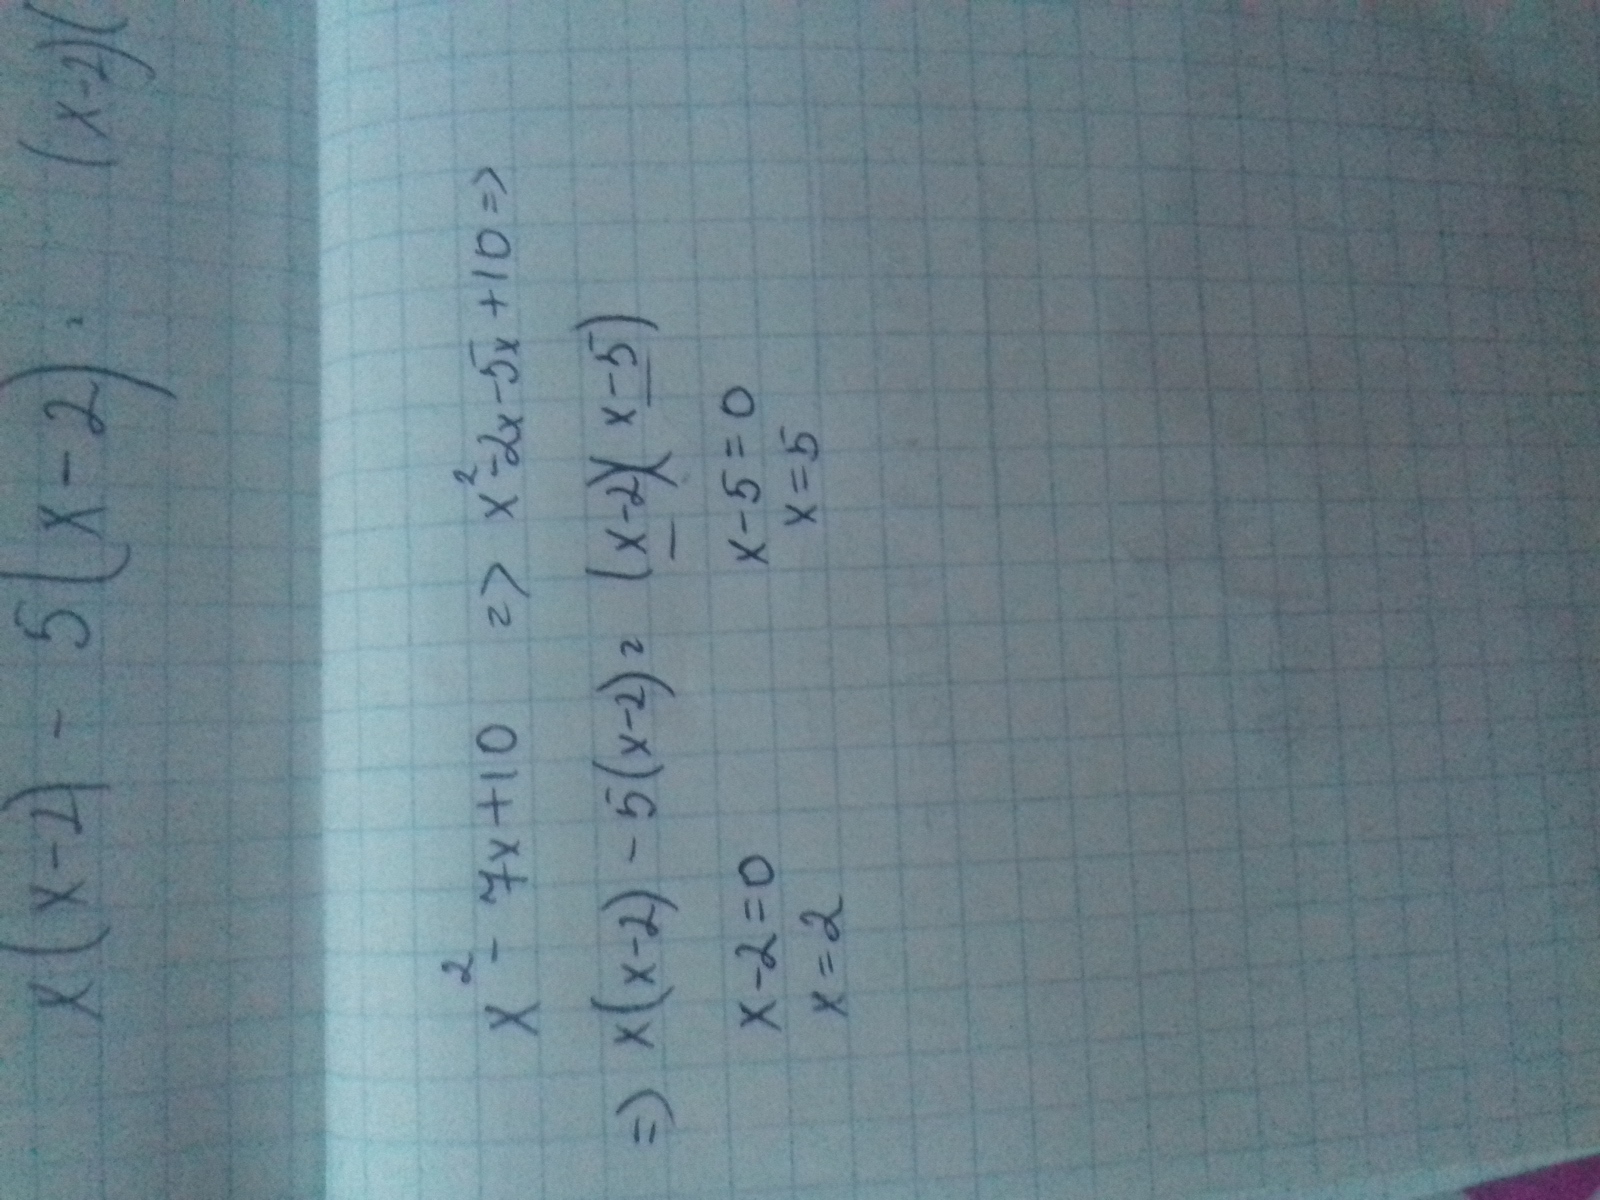 x(x-2) - 5(x-2) = (x-2)(
x² - 7x+10 => x²-2x-5x+10=>
=) x(x-2) - 5(x-2)= (x-2)(x-5)
x-2=0 x-5=0
x=2 x=5